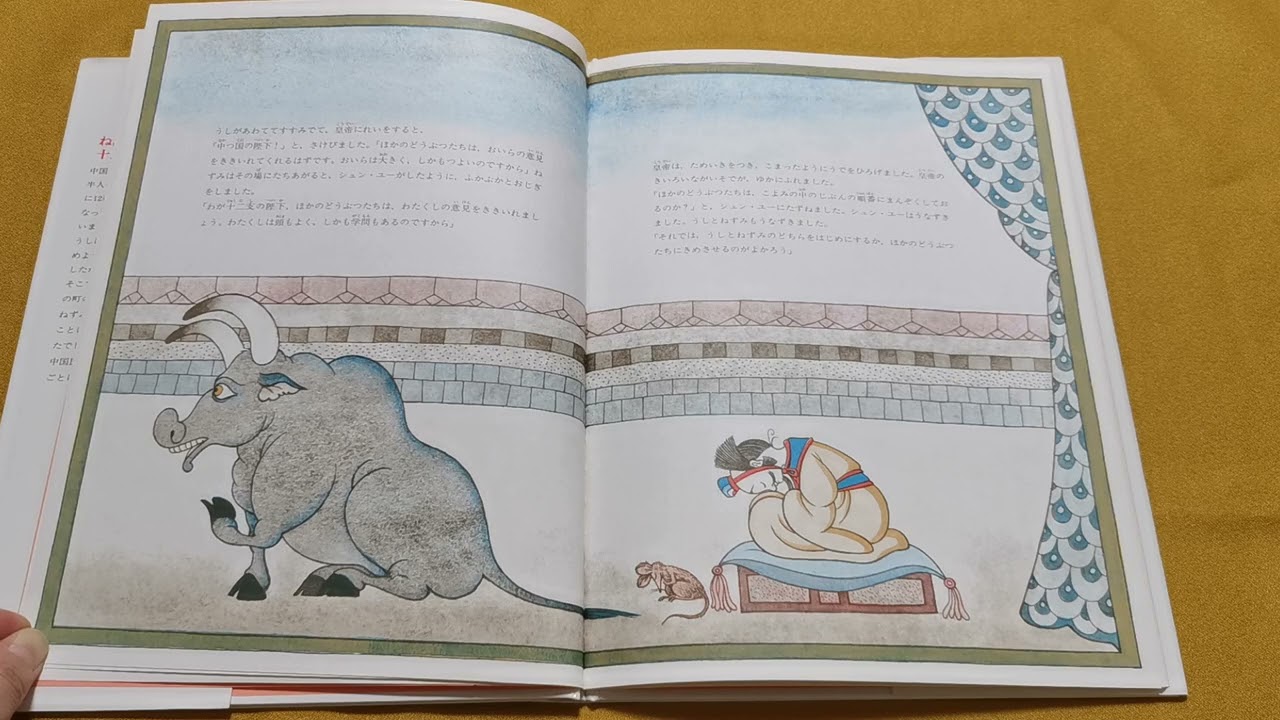 うしがあわててすすみでて、皇帝にれいをすると、
「中つ国の陛下！」と、さけびました。「ほかのどうぶつたちは、おいらの意見
をききいれてくれるはずです。おいらは大きく、しかもつよいのですから」ね
ずみはその場にたちあがると、シュン・ユーがしたように、ふかぶかとおじぎ
をしました。
「わが十二支の陛下、ほかのどうぶつたちは、わたくしの意見をききいれましょ
う。わたくしは頭もよく、しかも学問もあるのですから」
皇帝は、ためいきをつき、こまったようにうでをひろげました。皇帝の
きいろいながいそでが、ゆかにふれました。
「ほかのどうぶつたちは、こよみの中のじぶんの順番にまんぞくしてお
るのか？」と、シュン・ユーにたずねました。シュン・ユーはうなずき
ました。うしとねずみもうなずきました。
「それでは、うしとねずみのどちらをはじめにするか、ほかのどうぶつ
たちにきめさせるのがよかろう」
ね
十
中国
半人
には
なっ
いま
うし
めよ
した
そこ
の町
ねず
こと
たで
中国
ごと